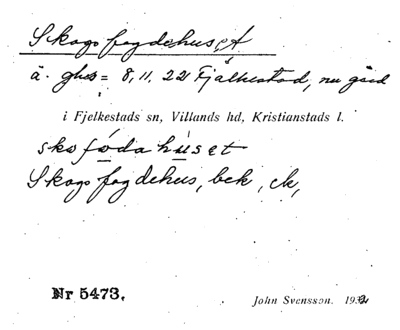 Skogsfogdehuset
ä. ghs = 8, 11, 22 Fjälkestad, nu gård
i Fjelkestads sn, Villands hd, Kristianstads l.
skofodahúset
Skogsfogdehus, bek, ek,
Nr 5473.
John Svensson. 1932